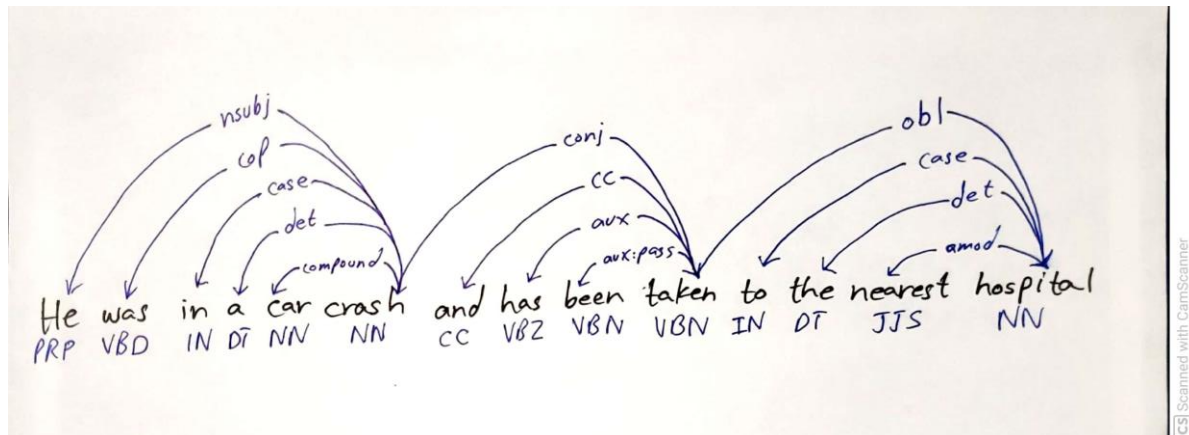 nsubj
cop
case
det
compound
conj
cc
aux
aux:pass
obl
case
det
amod
He was in a car crash and has been taken to the nearest hospital
PRP VBD IN DT NN NN CC VBZ VBN VBN IN DT JJS NN
CS Scanned with CamScanner